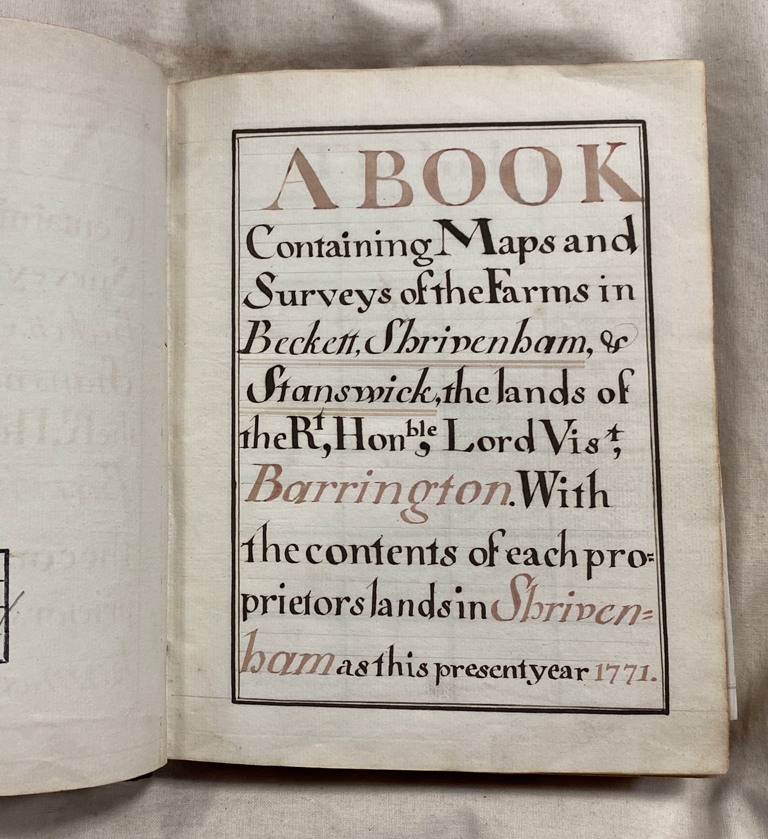 A BOOK
Containing Maps and
Surveys of the Farms in
Beckett, Shrivenham, &
Stanswick, the lands of
the Rᵗ, Honᵇˡᵉ, Lord Visᵗ,
Barrington. With
the contents of each pro=
prietors lands in Shriven=
ham as this present year 1771.